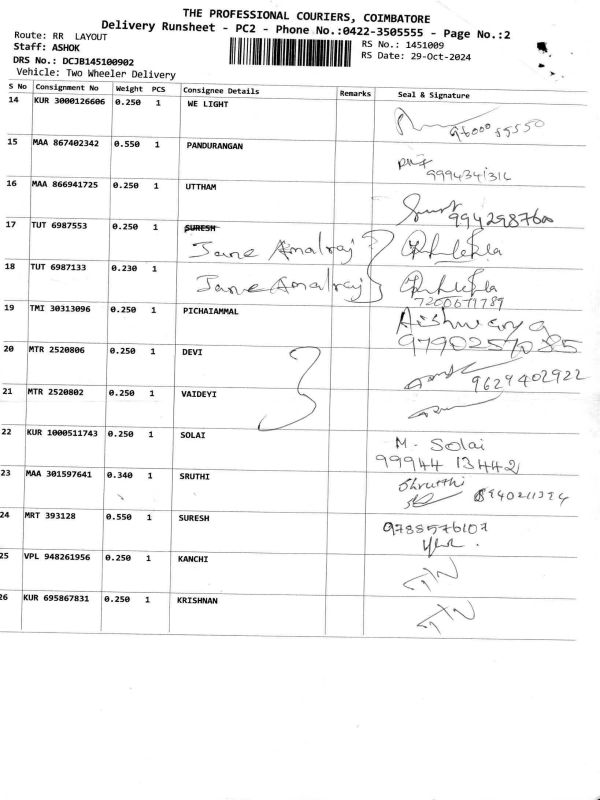 THE PROFESSIONAL COURIERS, COIMBATORE
Delivery Runsheet - PC2 - Phone No.:0422-3505555 - Page No.:2
Route: RR LAYOUT
RS No.: 1451009
Staff: ASHOK
RS Date: 29-Oct-2024
DRS No.: DCJB145100902
Vehicle: Two Wheeler Delivery
S No Consignment No Weight PCS Consignee Details Remarks Seal & Signature
14 KUR 3000126606 0.250 1 WE LIGHT
15 MAA 867402342 0.550 1 PANDURANGAN
9994341314
16 MAA 866941725 0.250 1 UTTHAM
9942987600
17 TUT 6987553 0.250 1 SURESH
Jane Amalraj
18 TUT 6987133 0.230 1
Jane Amalraj
7200671789
19 TMI 30313096 0.250 1 PICHAIAMMAL Aishwarya
9790257035
20 MTR 2520806 0.250 1 DEVI
9629402922
21 MTR 2520802 0.250 1 VAIDEYI
22 KUR 1000511743 0.250 1 SOLAI M. Solai
99944 13442
23 MAA 301597641 0.340 1 SRUTHI Shrutthi
24 MRT 393128 0.550 1 SURESH 9788576107
25 VPL 948261956 0.250 1 KANCHI
26 KUR 695867831 0.250 1 KRISHNAN